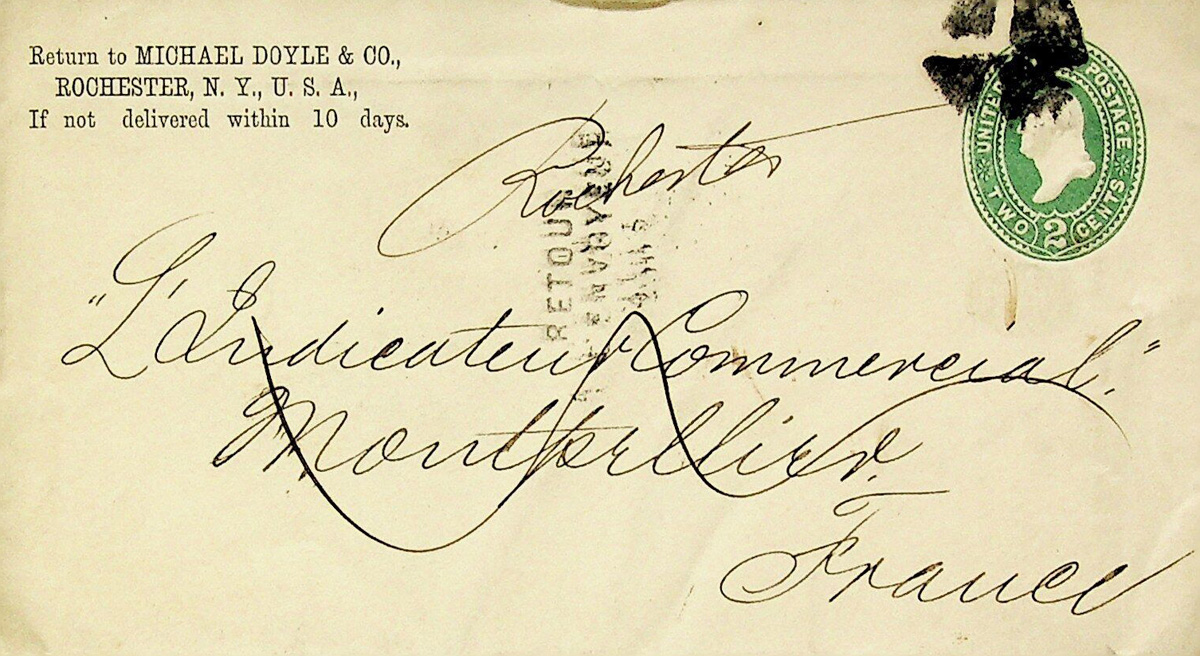 Return to MICHAEL DOYLE & CO.,
ROCHESTER, N. Y., U. S. A.,
If not delivered within 10 days.
UNITED POSTAGE
TWO 2 CENTS
Rochester
RETOU
"L'Indicateur Commercial."
Montpellier.
France